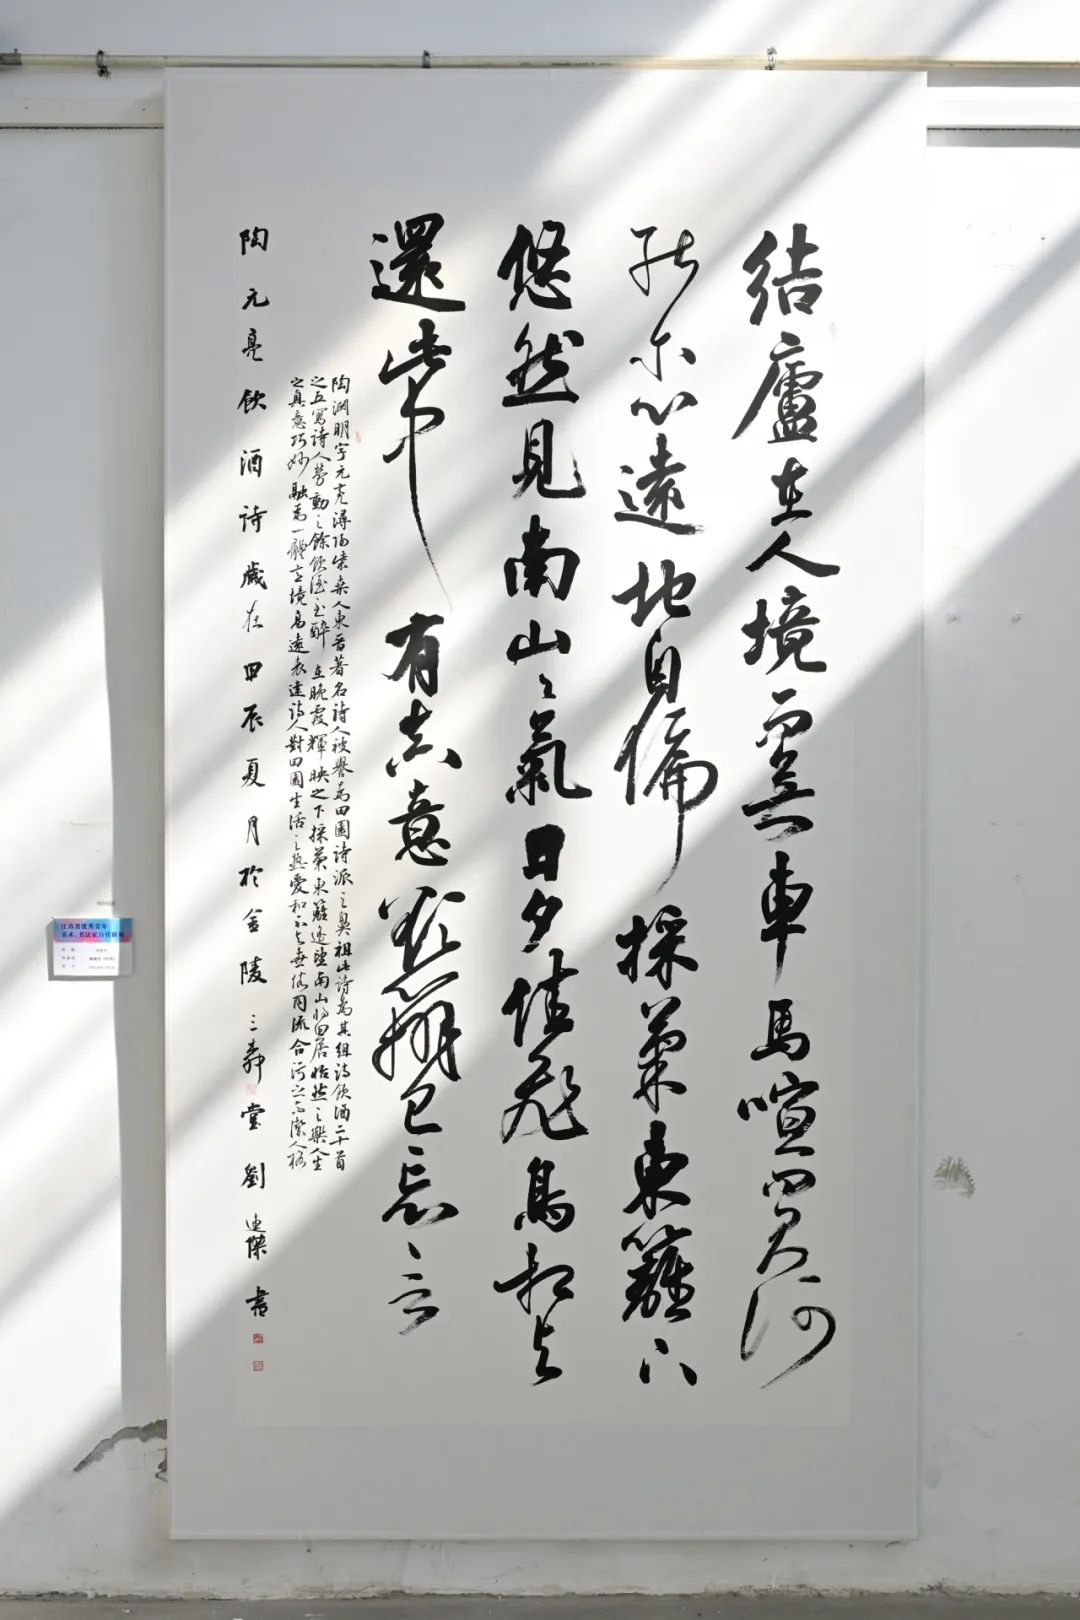 结廬在人境而無車馬喧問君何
能尔心遠地自偏採菊東籬下
悠然見南山〻氣日夕佳飛鳥相与
還此中有真意欲辨已忘言
陶渊明字元亮潯陽柴桑人東晋著名詩人被譽為田園詩派之鼻祖此詩為其組詩飲酒二十首
之五寫詩人勞動之餘飲酒至醉在晚霞輝映之下採菊東籬遥望南山将田居怡然之樂人生
之真意巧妙融為一體意境高遠表達詩人對田園生活之熱愛和不与世俗同流合污之高潔人格
陶元亮飲酒詩歲在甲辰夏月於金陵三堂劉迪傑書
江苏省优秀青年
美术、书法家百佳联展